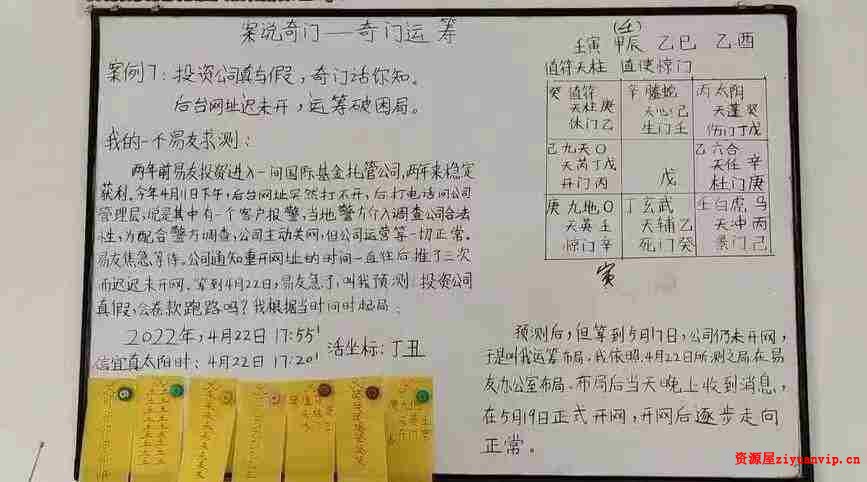 案说奇门——奇门运筹
案例7：投资公司真与假，奇门话你知。
后台网址迟未开，运筹破困局。
我的一个易友求测：
两年前易友投资进入一间国际基金托管公司，两年来稳定
获利。今年4月1日下午，后台网址突然打不开，后打电话问公司
管理层，说是其中有一个客户报警，当地警方介入调查公司合法
性，为配合警方调查，公司主动关网，但公司运营等一切正常。
易友焦急等待。公司通知重开网址的时间一直往后推了三次
而迟迟未开网。等到4月22日，易友急了，叫我预测：投资公司
真假，会卷款跑路吗？我根据当时间时起局：
2022年，4月22日 17:55'
信宜真太阳时：4月22日 17:20'
活坐标：丁丑
(壬)
壬寅 甲辰 乙巳 乙酉
值符天柱 值使惊门
癸 值符 辛 螣蛇 丙 太阴
天柱 庚 天心 己 天蓬 癸
休门 乙 生门 壬 伤门 丁戊
己 九天 O 乙 六合
天芮 丁戊 戊 天任 辛
开门 丙 杜门 庚
庚 九地 O 丁 玄武 壬 白虎 马
天英 壬 天辅 乙 天冲 丙
惊门 辛 死门 癸 景门 己
寅
预测后，但等到5月17日，公司仍未开网，
于是叫我运筹布局。我依照4月22日所测之局在易
友办公室布局。布局后当天晚上收到消息，
在5月19日正式开网，开网后逐步走向
正常。
资源屋ziyuanvip.cn